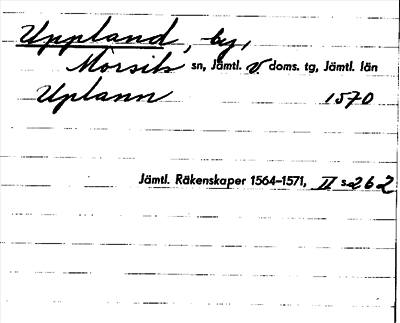 Uppland, by,
Mörsils sn, Jämtl. v. doms. tg, Jämtl. län
Uplann 1570
Jämtl. Räkenskaper 1564–1571, II s. 262